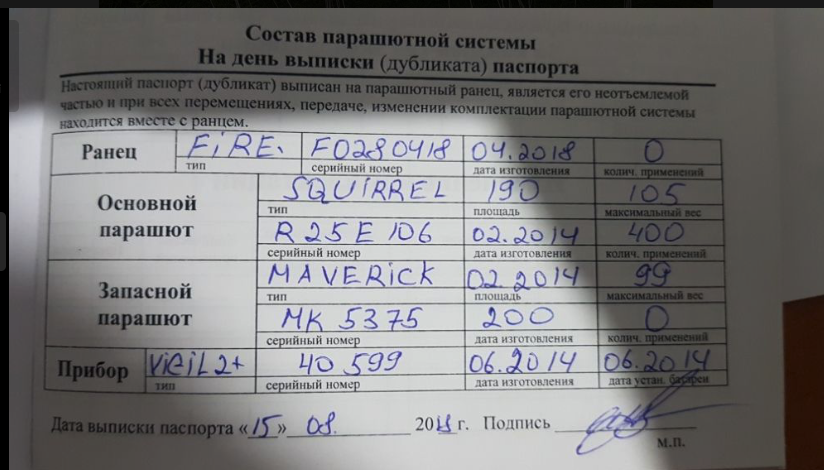 Состав парашютной системы
На день выписки (дубликата) паспорта
Настоящий паспорт (дубликат) выписан на парашютный ранец, является его неотъемлемой
частью и при всех перемещениях, передаче, изменении комплектации парашютной системы
находится вместе с ранцем.
Ранец FiRE. F0280418 04.2018 0
тип серийный номер дата изготовления колич. применений
Основной парашют SQUiRREL 190 105
тип площадь максимальный вес
R25E106 02.2014 400
серийный номер дата изготовления колич. применений
Запасной парашют MAVERiCK 02.2014 99
тип площадь максимальный вес
MK 5375 200 0
серийный номер дата изготовления колич. применений
Прибор ViGiL2+ 40599 06.2014 06.2014
тип серийный номер дата изготовления дата устан. батареи
Дата выписки паспорта «15» 08. 2018г. Подпись
м.п.